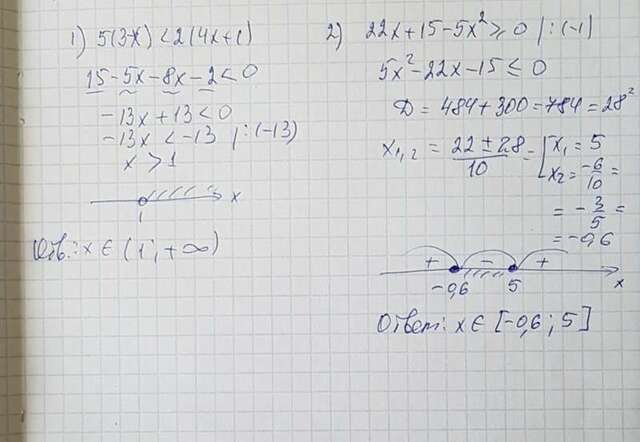 1) 5(3-x) < 2(4x+1)
15 - 5x - 8x - 2 < 0
-13x + 13 < 0
-13x < -13 | :(-13)
x > 1
1 x
Отв.: x ∈ (1; +∞)
2) 22x + 15 - 5x² ≥ 0 | :(-1)
5x² - 22x - 15 ≤ 0
D = 484 + 300 = 784 = 28²
x₁,₂ = (22 ± 28)/10 = [x₁ = 5
x₂ = -6/10 =
= -3/5 =
= -0,6
+ - +
-0,6 5 x
Ответ: x ∈ [-0,6; 5]